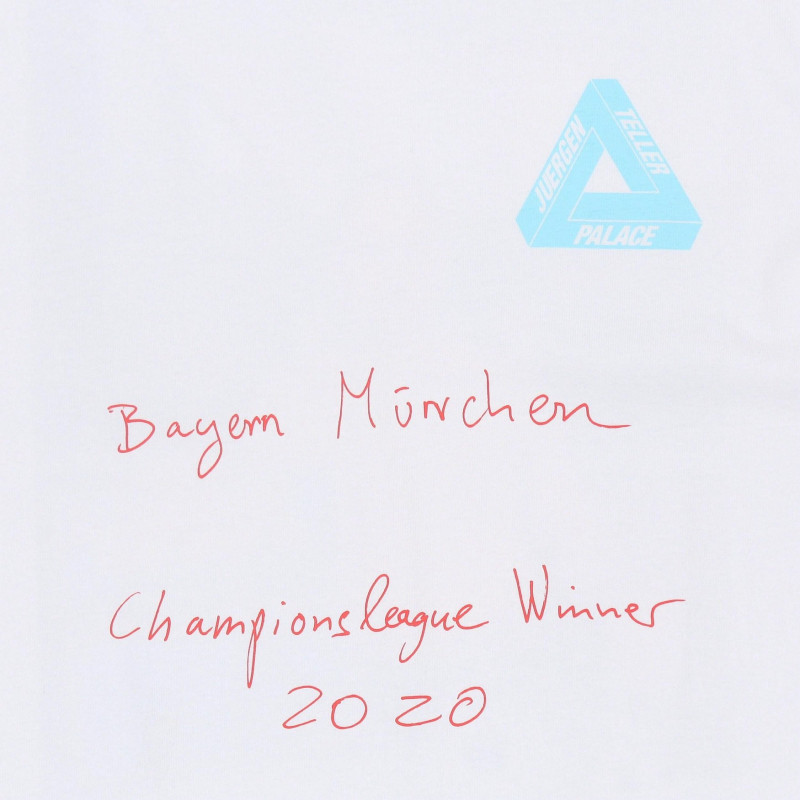 JUERGEN
TELLER
PALACE
Bayern München
Championsleague Winner
2020